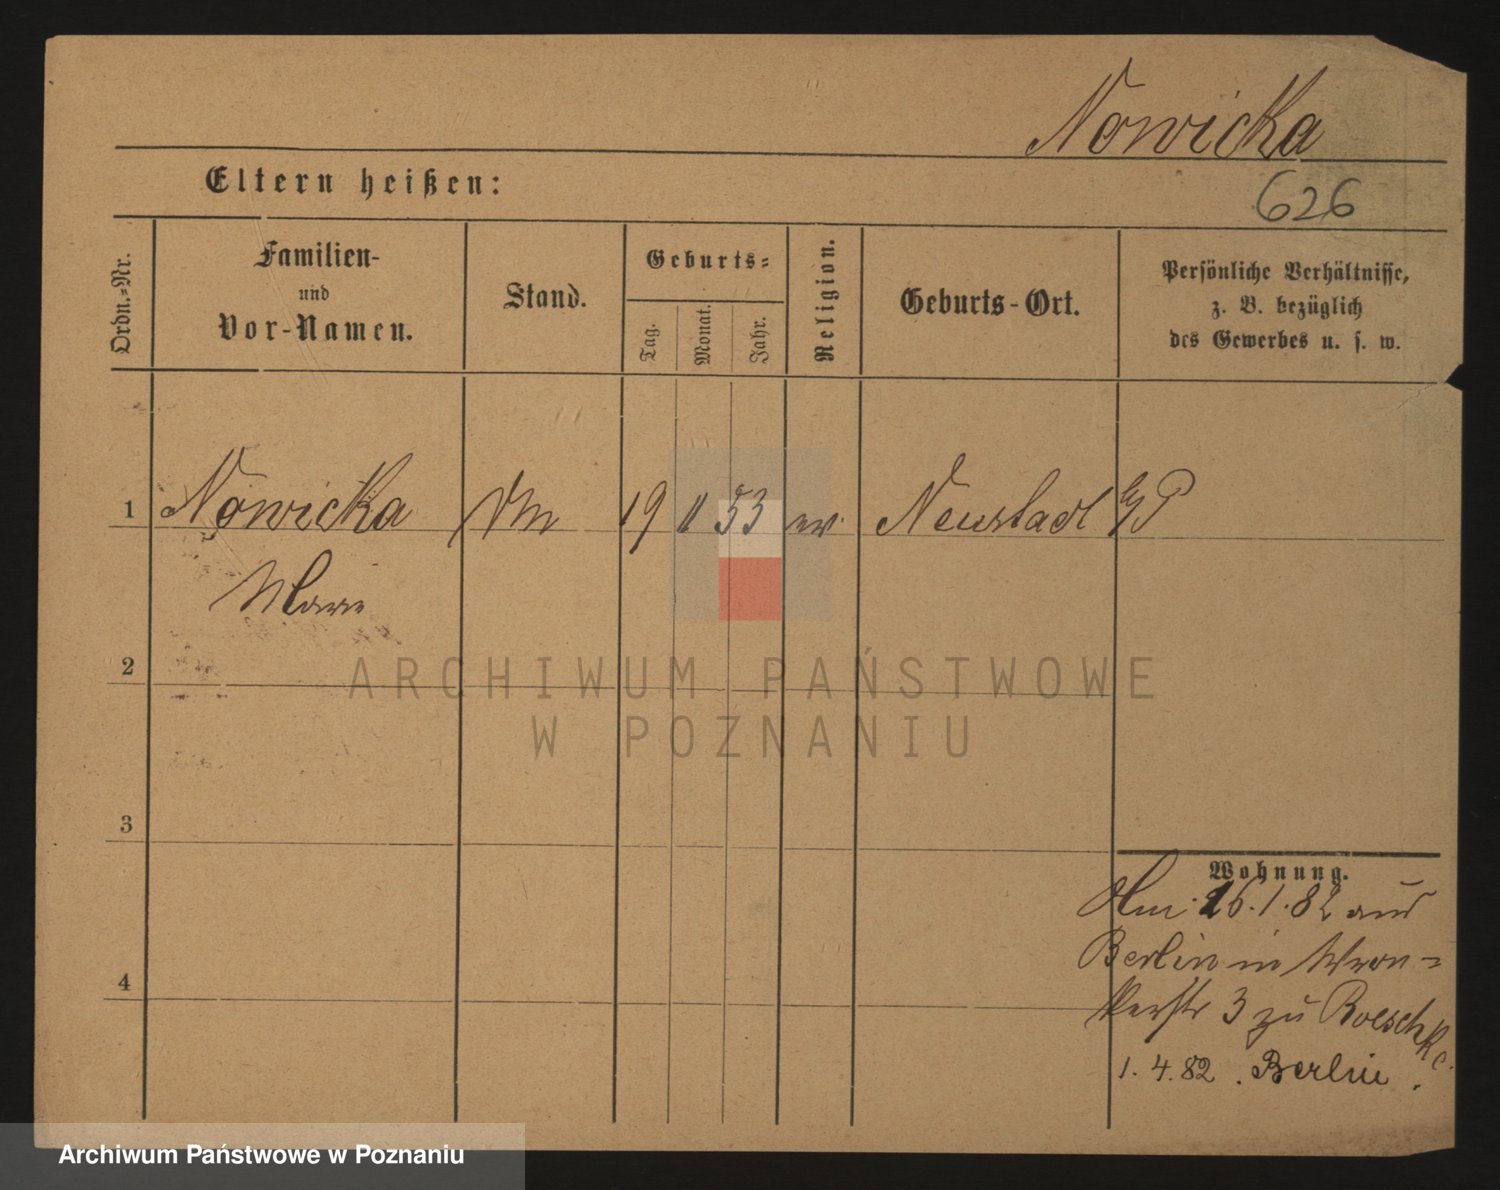 Nowicka
Eltern heißen:
626
Ordn.-Nr.
Familien-
und
Vor-Namen.
Stand.
Geburts-
Tag.
Monat.
Jahr.
Religion.
Geburts-Ort.
Persönliche Verhältnisse,
z. B. bezüglich
des Gewerbes u. s. w.
1 Nowicka 19 11 53 ev. Neustadt
Marie
2
ARCHIWUM PAŃSTWOWE
W POZNANIU
3
4
Wohnung.
16.1.82 aus
Berlin in Wron-
kerstr 3 zu Roeschke
1.4.82. Berlin.
Archiwum Państwowe w Poznaniu